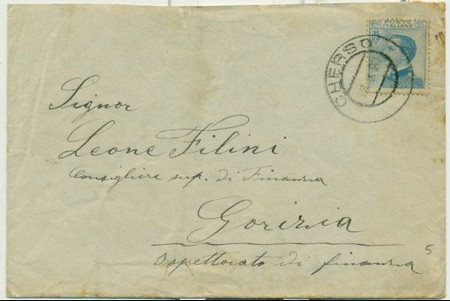 POSTE ITALIANE
CHERSO
Signor
Leone Filini
Consigliere sup. di Finanza
Gorizia
Ospettorato di finanza
5